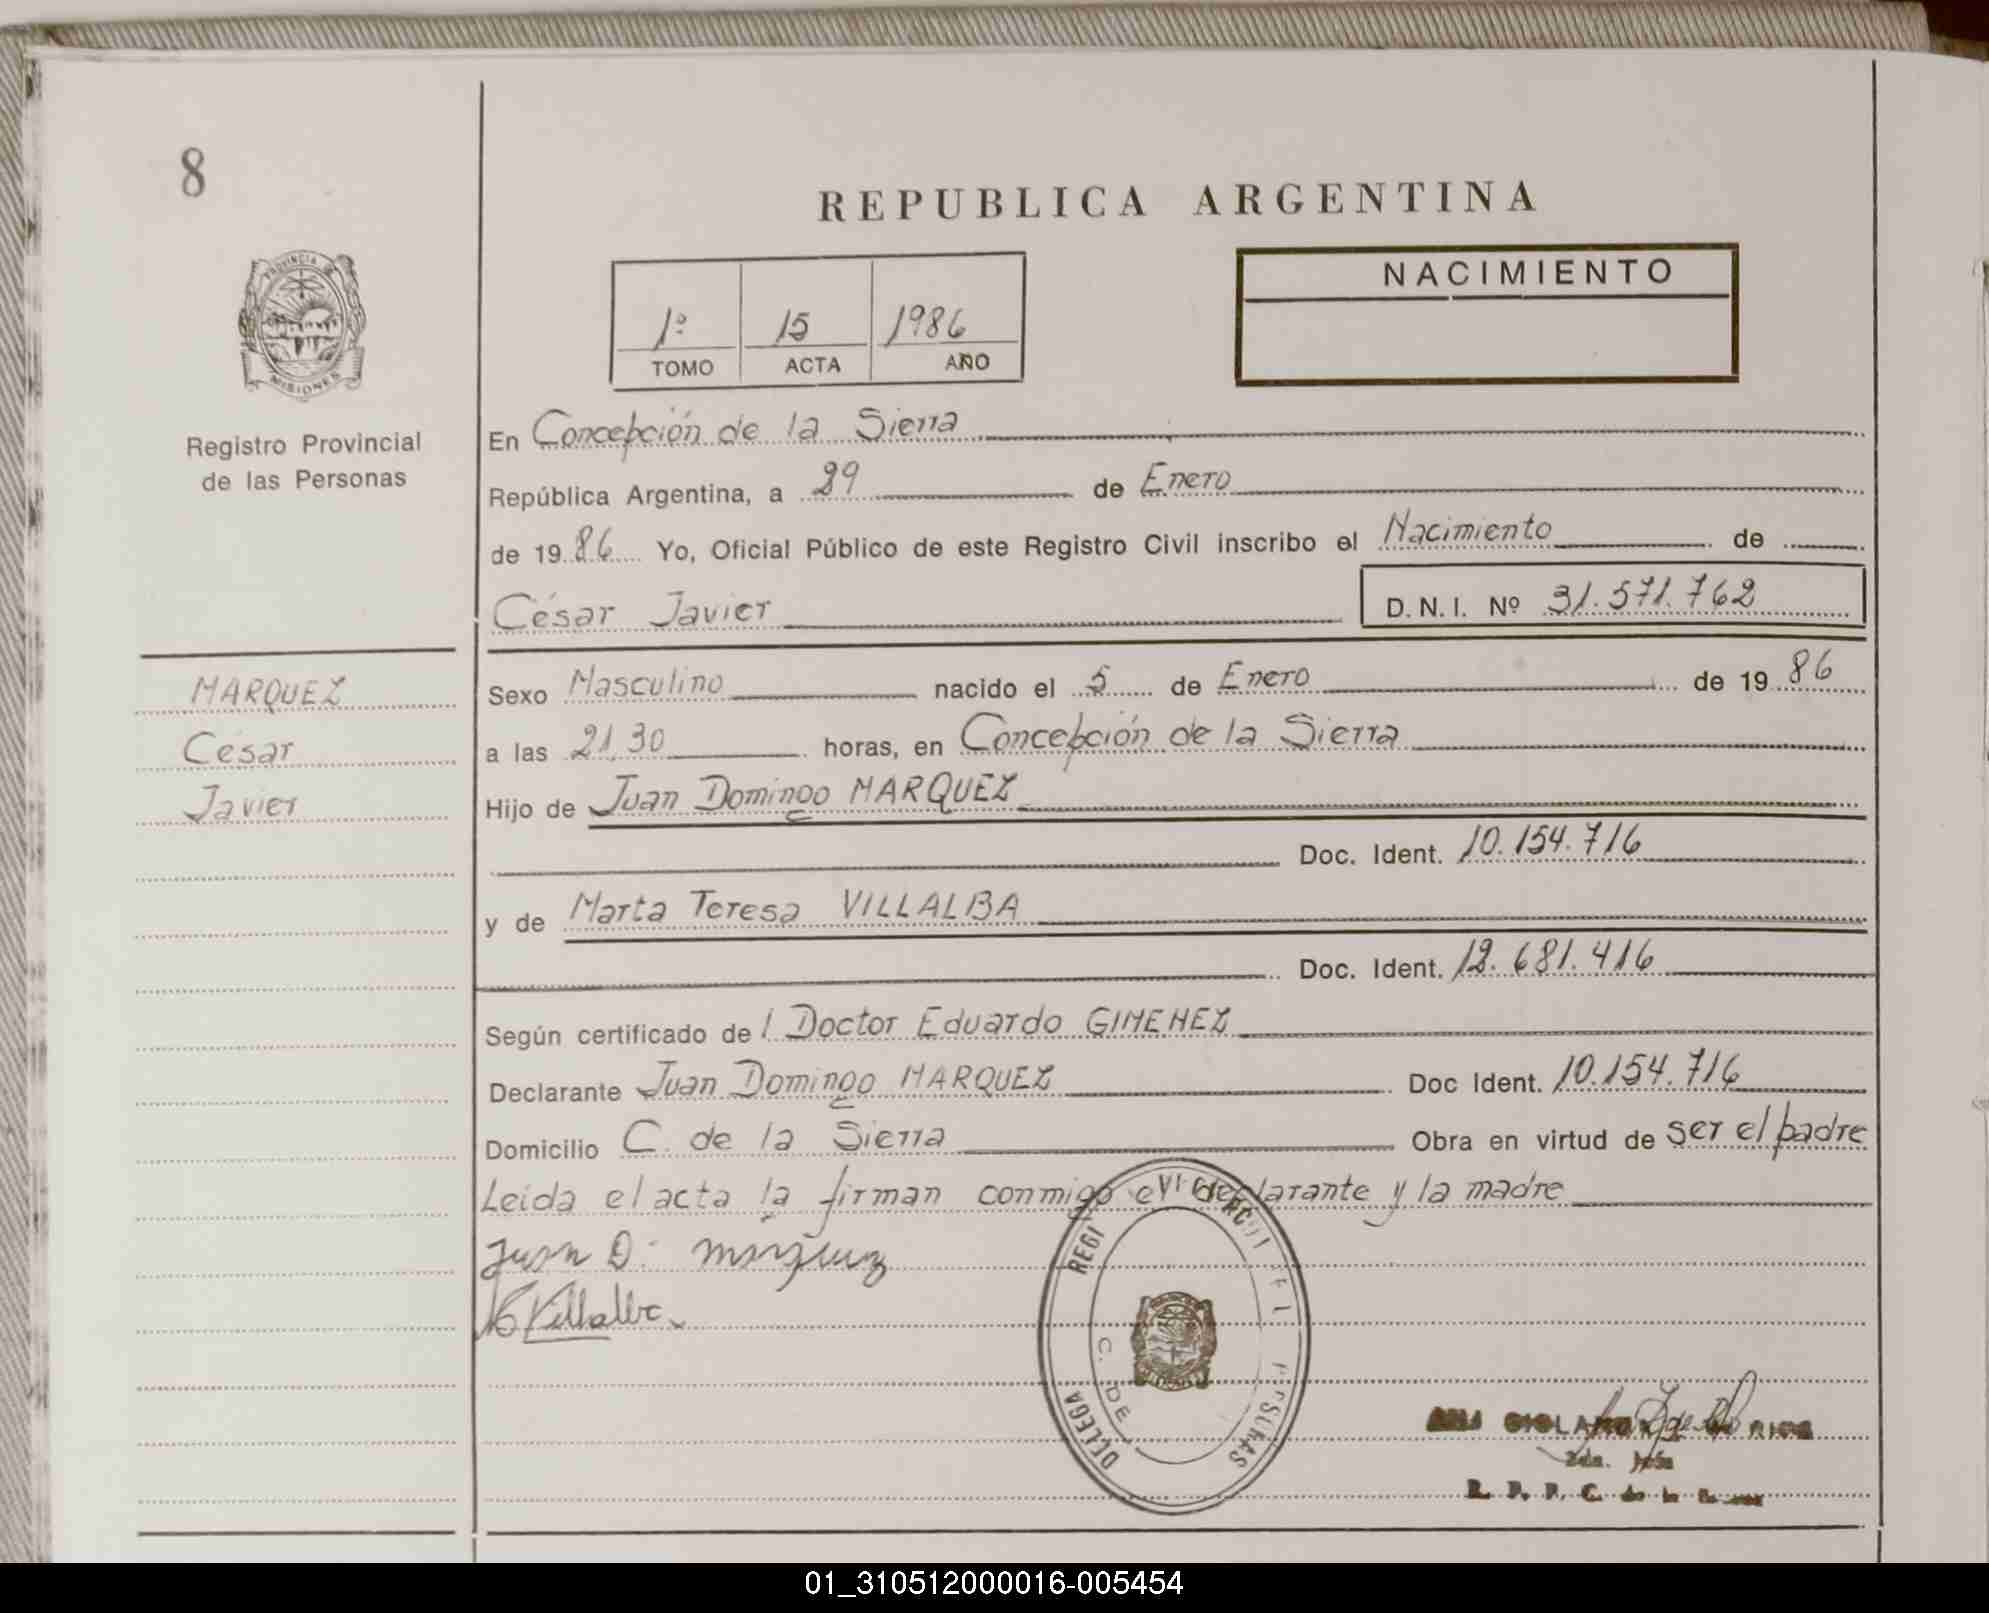 8
REPUBLICA ARGENTINA
PROVINCIA DE MISIONES
1º 15 1986
TOMO ACTA AÑO
NACIMIENTO
Registro Provincial
de las Personas
En Concepción de la Sierra
República Argentina, a 29 de Enero
de 19 86 Yo, Oficial Público de este Registro Civil inscribo el Nacimiento de
César Javier D.N.I. Nº 31.571.762
MARQUEZ
César
Javier
Sexo Masculino nacido el 5 de Enero de 19 86
a las 21,30 horas, en Concepción de la Sierra
Hijo de Juan Domingo MARQUEZ
Doc. Ident. 10.154.716
y de Marta Teresa VILLALBA
Doc. Ident. 12.681.416
Según certificado de l Doctor Eduardo GIMENEZ
Declarante Juan Domingo MARQUEZ Doc Ident. 10.154.716
Domicilio C. de la Sierra Obra en virtud de ser el padre
Leída el acta la firman conmigo el declarante y la madre
Juan D. Marquez
Villalba
C. DE
2da. Jefa
R. P. P. C. de la
01_310512000016-005454